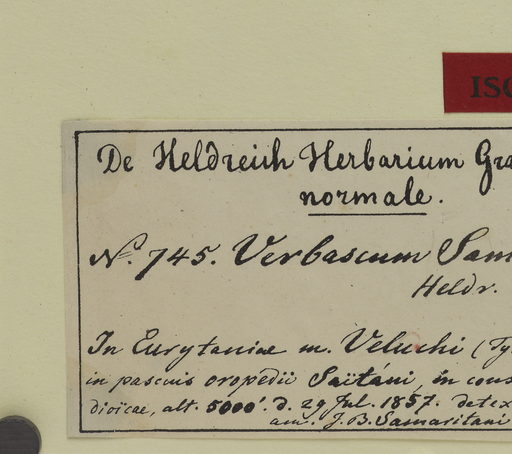 ISO
De Heldreich Herbarium Gra
normale.
No. 745. Verbascum Sam
Heldr.
In Eurytaniae m. Veluchi (Ty
in pascuis oropedii Saïtáni, in cons
dioicae, alt. 5000'. d. 29 Jul. 1857. detex
am. J. B. Samaritani